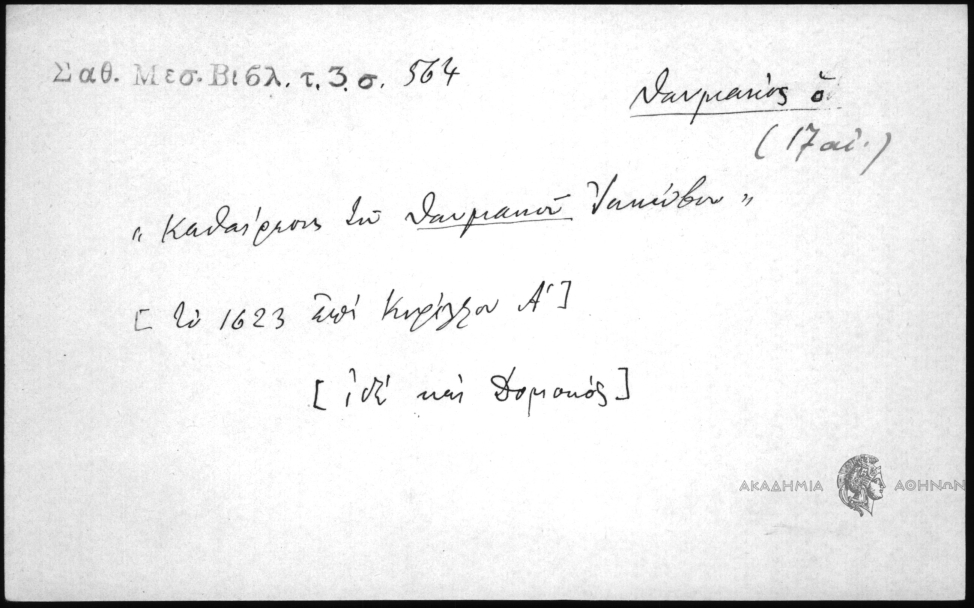 Σαθ. Μεσ. Βιβλ. τ. 3. σ. 564
Θαυμακός ὁ
(17 αἰ.)
„ Καθαίρεσις τοῦ Θαυμακοῦ Ἰακώβου "
[ τὸ 1623 ἐπὶ Κυρίλλου Α´ ]
[ ἰδὲ καὶ Δομοκός ]
ΑΚΑΔΗΜΙΑ ΑΘΗΝΩΝ